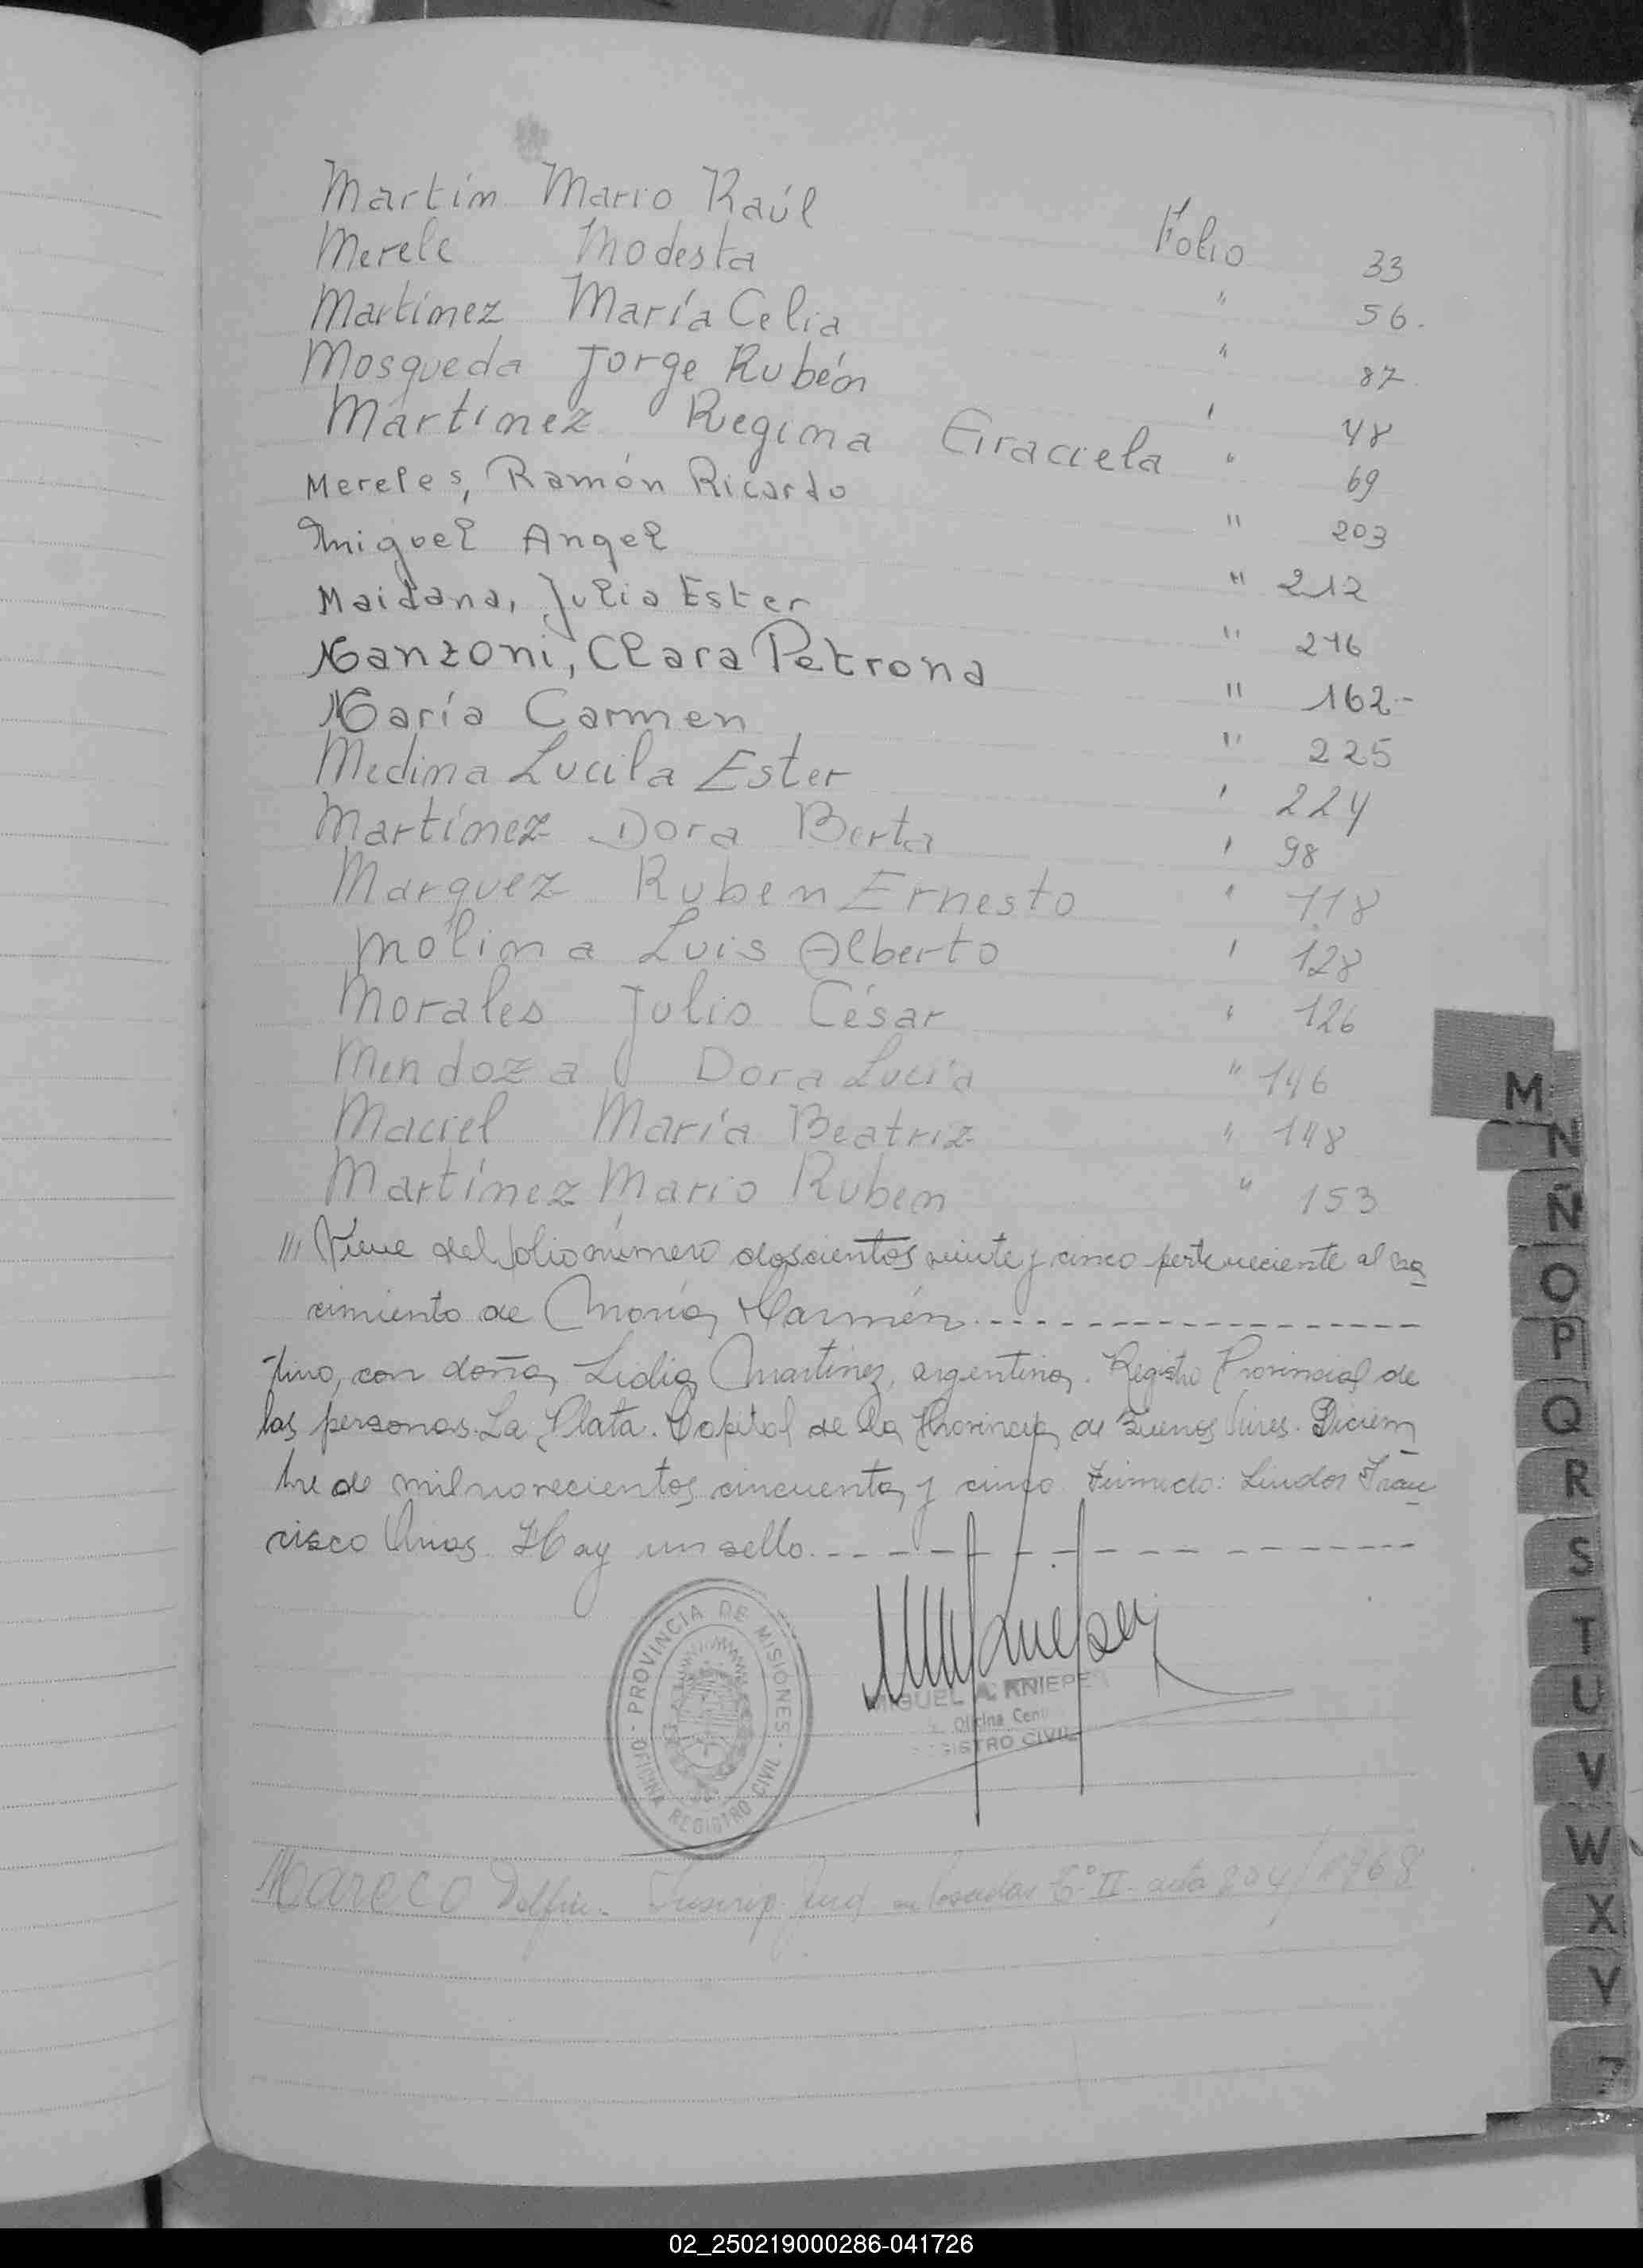 Martín Mario Raúl Folio 33
Merele Modesta " 56.
Martínez María Celia " 87
Mosqueda Jorge Rubén ' 48
Martínez Regina Graciela " 69
Mereles, Ramón Ricardo " 203
Miguel Angel " 212
Maidana, Julia Ester " 216
Manzoni, Clara Petrona " 162-
María Carmen " 225
Medina Lucila Ester ' 224
Martínez Dora Berta ' 98
Marquez Ruben Ernesto " 118
Molina Luis Alberto ' 128
Morales Julio César " 126
Mendoza Dora Lucía " 146
Maciel María Beatriz " 148
Martínez Mario Ruben " 153
/// Viene del folio número doscientos veinte y cinco perteneciente al na
cimiento de María Carmén.
tino, con doña Lidia Martínez, argentina. Registro Provincial de
las personas. La Plata. Capital de la Provincia de Buenos Aires. Diciem
bre de mil novecientos cincuenta y cinco. Firmado: Lindor Fran
cisco Arias. Hay un sello.
PROVINCIA DE MISIONES
OFICINA REGISTRO CIVIL
MIGUEL A. KNIEPER
Oficina Cent
REGISTRO CIVIL
Mareco Delfin - Inscrip. Jud. en Posadas Tº II - acta 804/1968
M
N
Ñ
O
P
Q
R
S
T
U
V
W
X
Y
Z
02_250219000286-041726